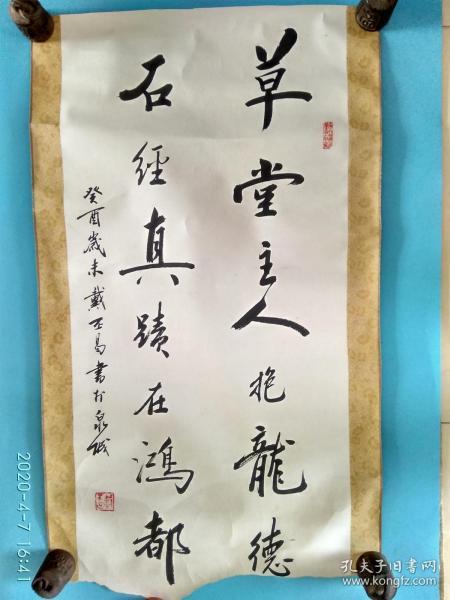 草堂主人抱龍德
石經真蹟在鴻都
癸酉歲末戴玉昌書於泉城
2020-4-7 16:41
孔夫子旧书网
www.kongfz.com